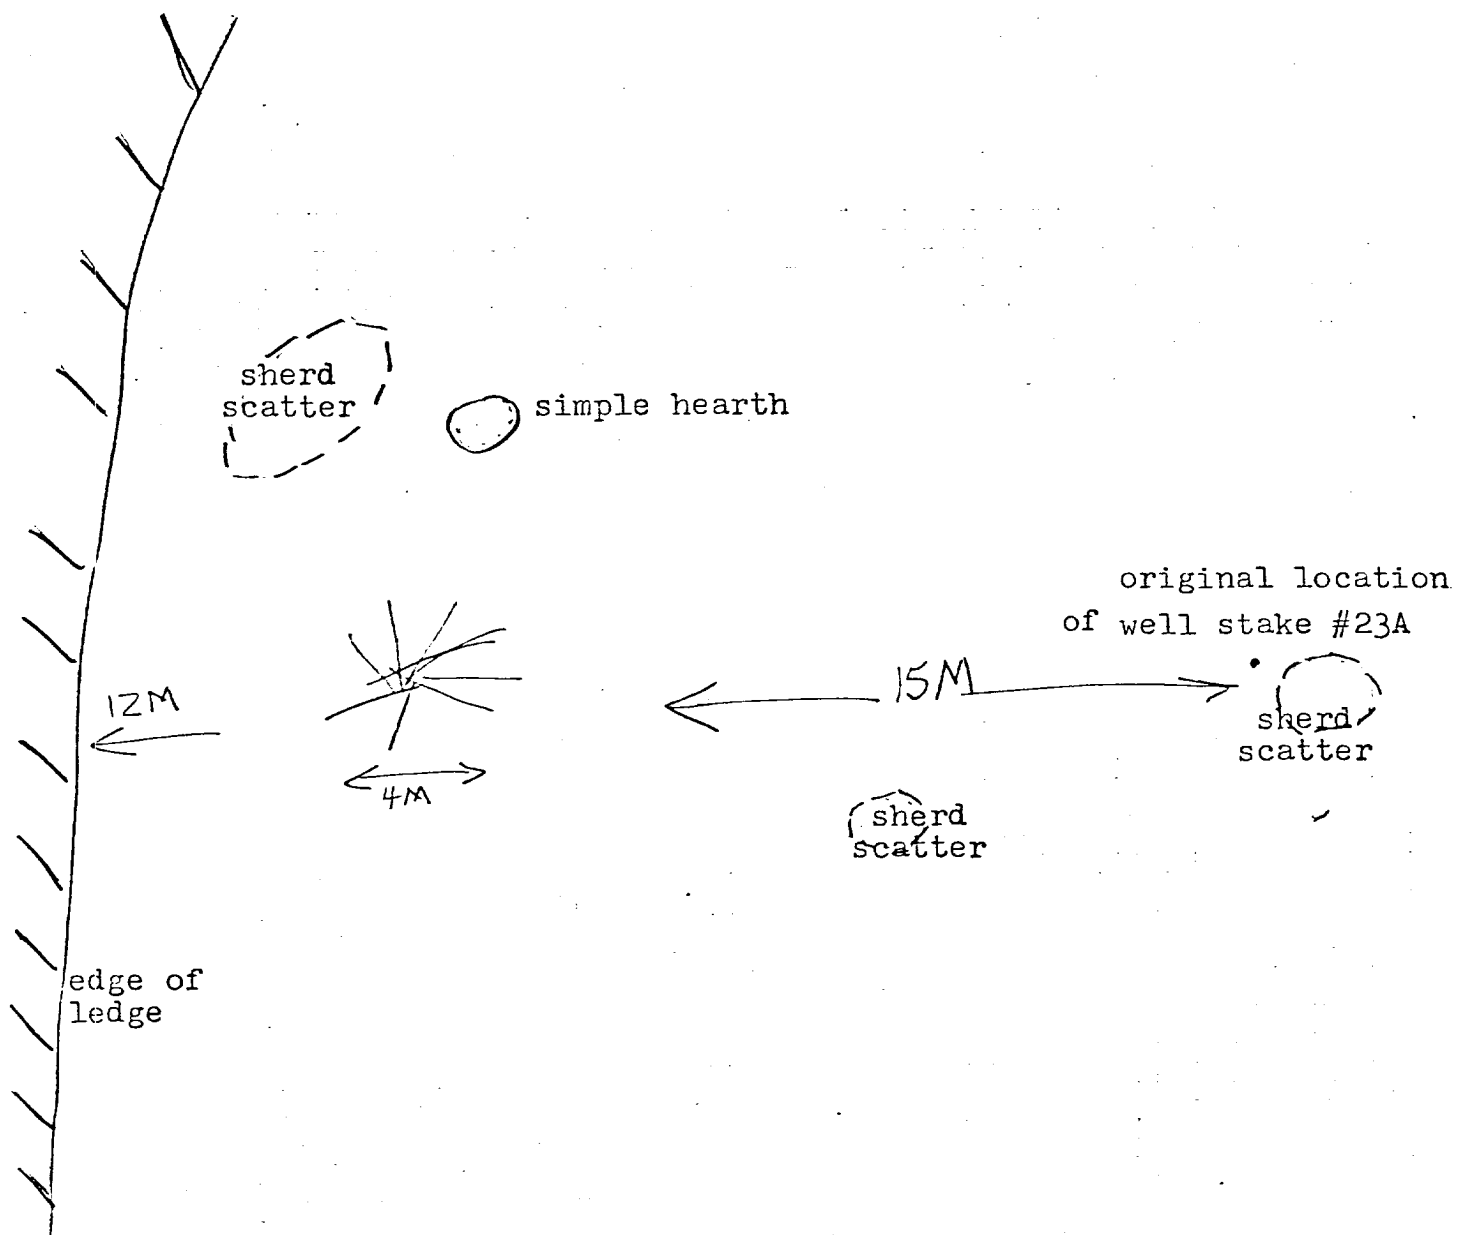 sherd
scatter
simple hearth
original location
of well stake #23A
12M
15M
sherd
scatter
4M
sherd
scatter
edge of
ledge